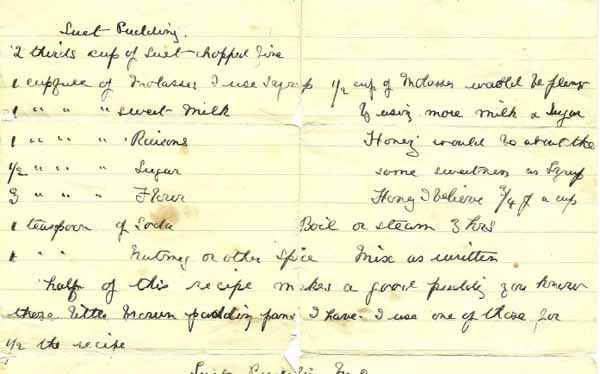 Suet Pudding.
2 thirds cup of Suet chopped fine
1 cupfull of Molasses I use Syrup 1/2 cup of Molasses would be plenty
1 " " " sweet Milk If using more milk & Sugar
1 " " " Raisons Honey would be about the
1/2 " " " Sugar same sweetness as Syrup
3 " " " Flour Honey I believe 3/4 of a cup
1 teaspoon of Soda Boil or steam 3 hrs
1 " " Nutmeg or other Spice Mix as written
half of this recipe makes a good pudding you know
those little brown pudding pans I have. I use one of those for
1/2 the recipe
Suet Pudding No 2